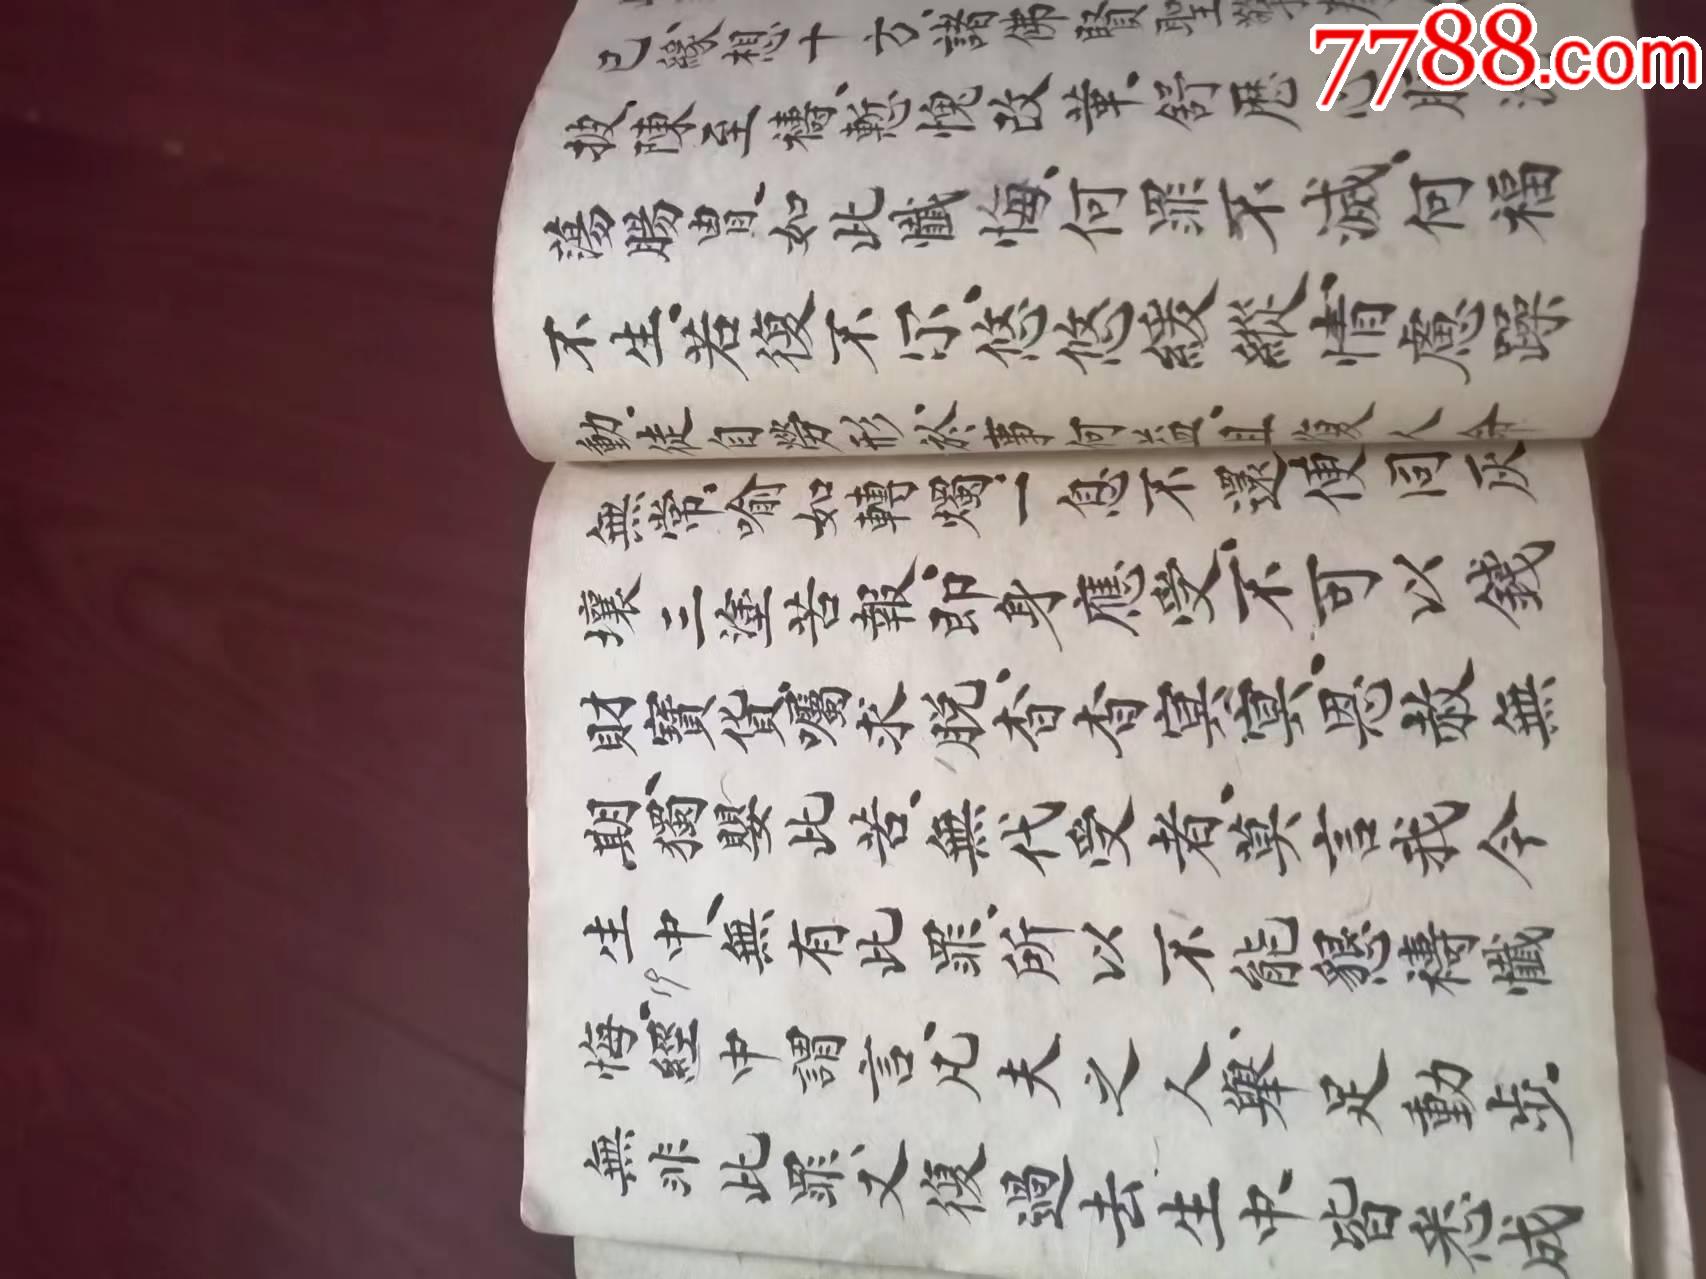 已緣想十方諸佛賢聖擎
披陳至禱慙愧改革舒歷心肝洗
蕩腸胃、如此懺悔、何罪不滅、何福
不生、若復不尔、悠悠緩縱、情慮躁
動、徒自勞形、於事何益、且復人命
無常、喻如轉燭、一息不還、便同灰
壤、三塗苦報、即身應受、不可以錢
財寶貨、囑求脫、杳杳冥冥、恩赦無
期、獨嬰此苦、無代受者、莫言我今
生中、無有此罪、所以不能懇禱懺
悔、經中謂言、凡夫之人、舉足動步、
無非此罪、又復過去生中、皆悉成
19
7788.com